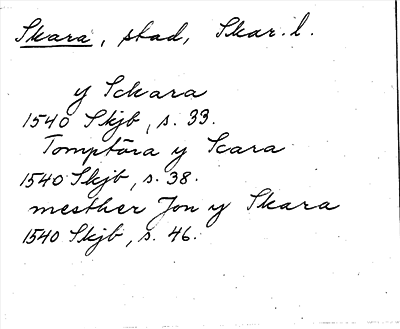 Skara, stad, Skar. l.
y Sckara
1540 Skjb, s. 33.
Tomptöra y Scara
1540 Skjb, s. 38.
mesther Jon y Skara
1540 Skjb, s. 46.